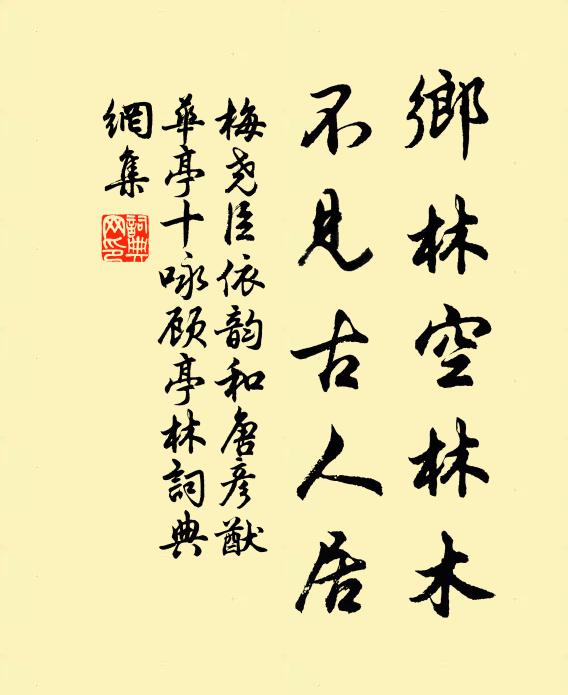 鄉林空林木
不見古人居
梅堯臣依韵和唐彦猷
華亭十咏顾亭林詞典
網集
詞典
网印